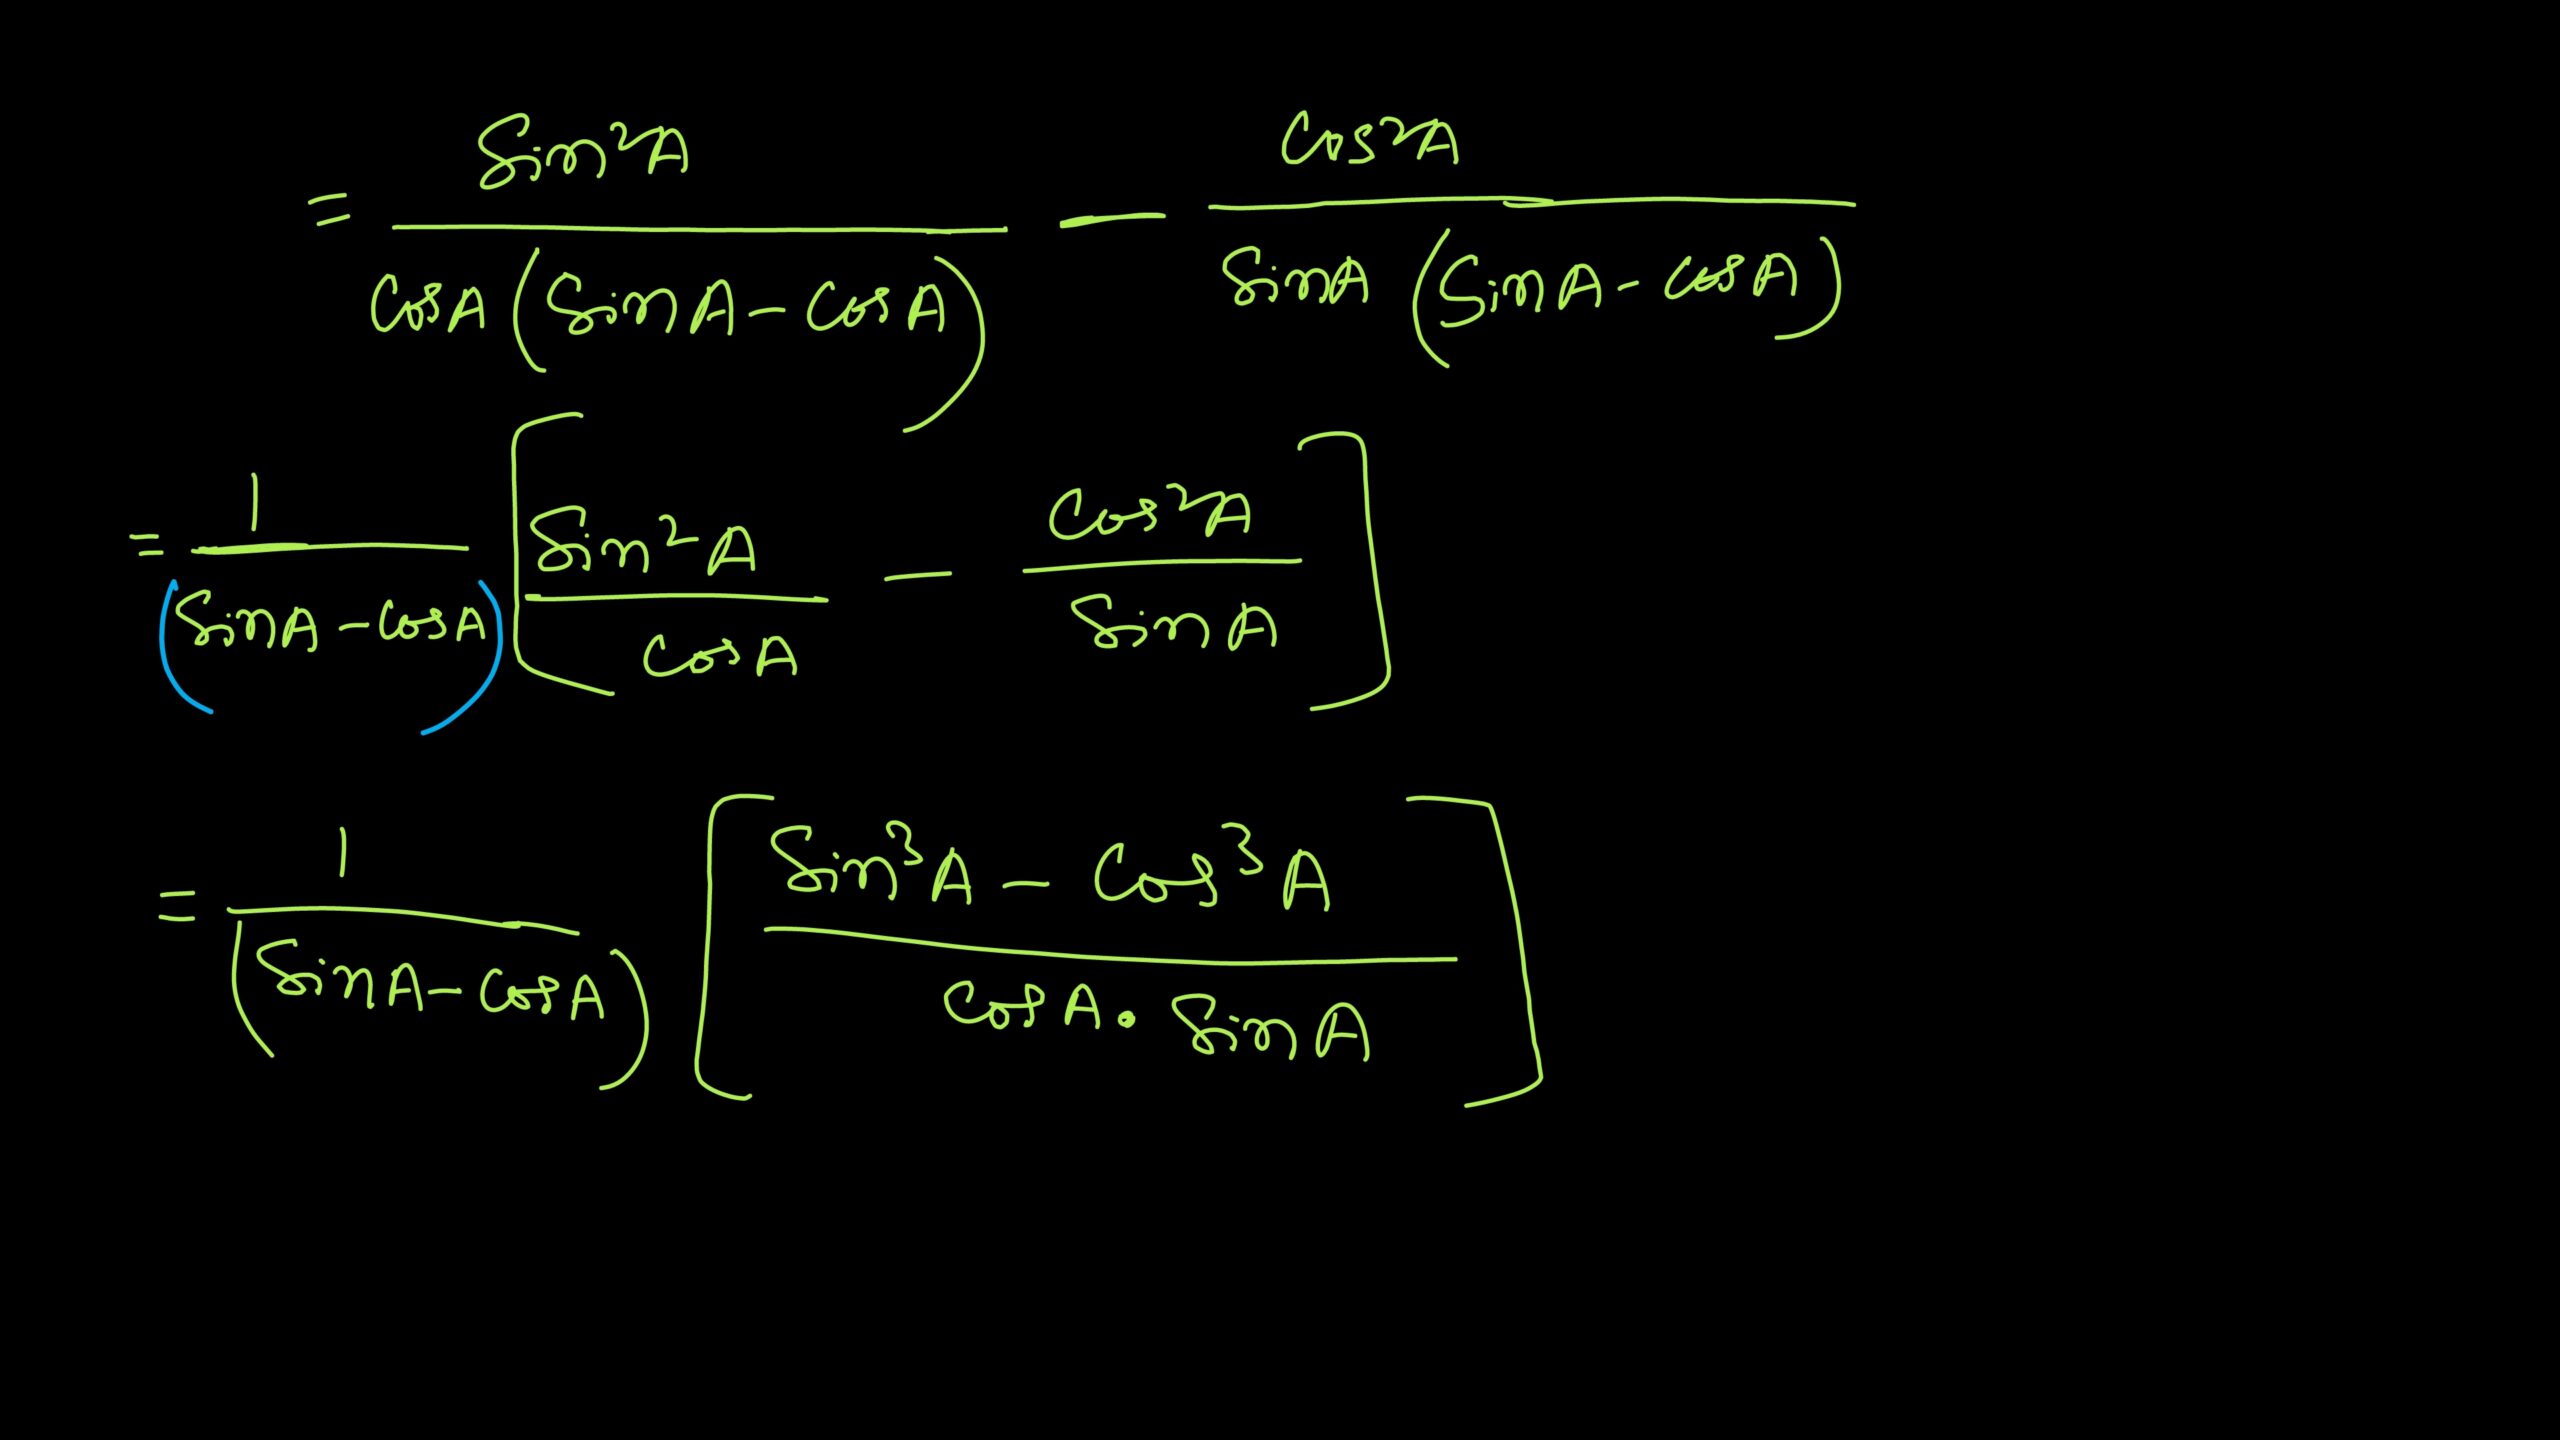 = Sin²A / CosA (SinA - CosA) — Cos²A / SinA (SinA - CosA)
= 1 / (SinA - CosA) [Sin²A / CosA - Cos²A / SinA]
= 1 / (SinA - CosA) [Sin³A - Cos³A / CosA . SinA]